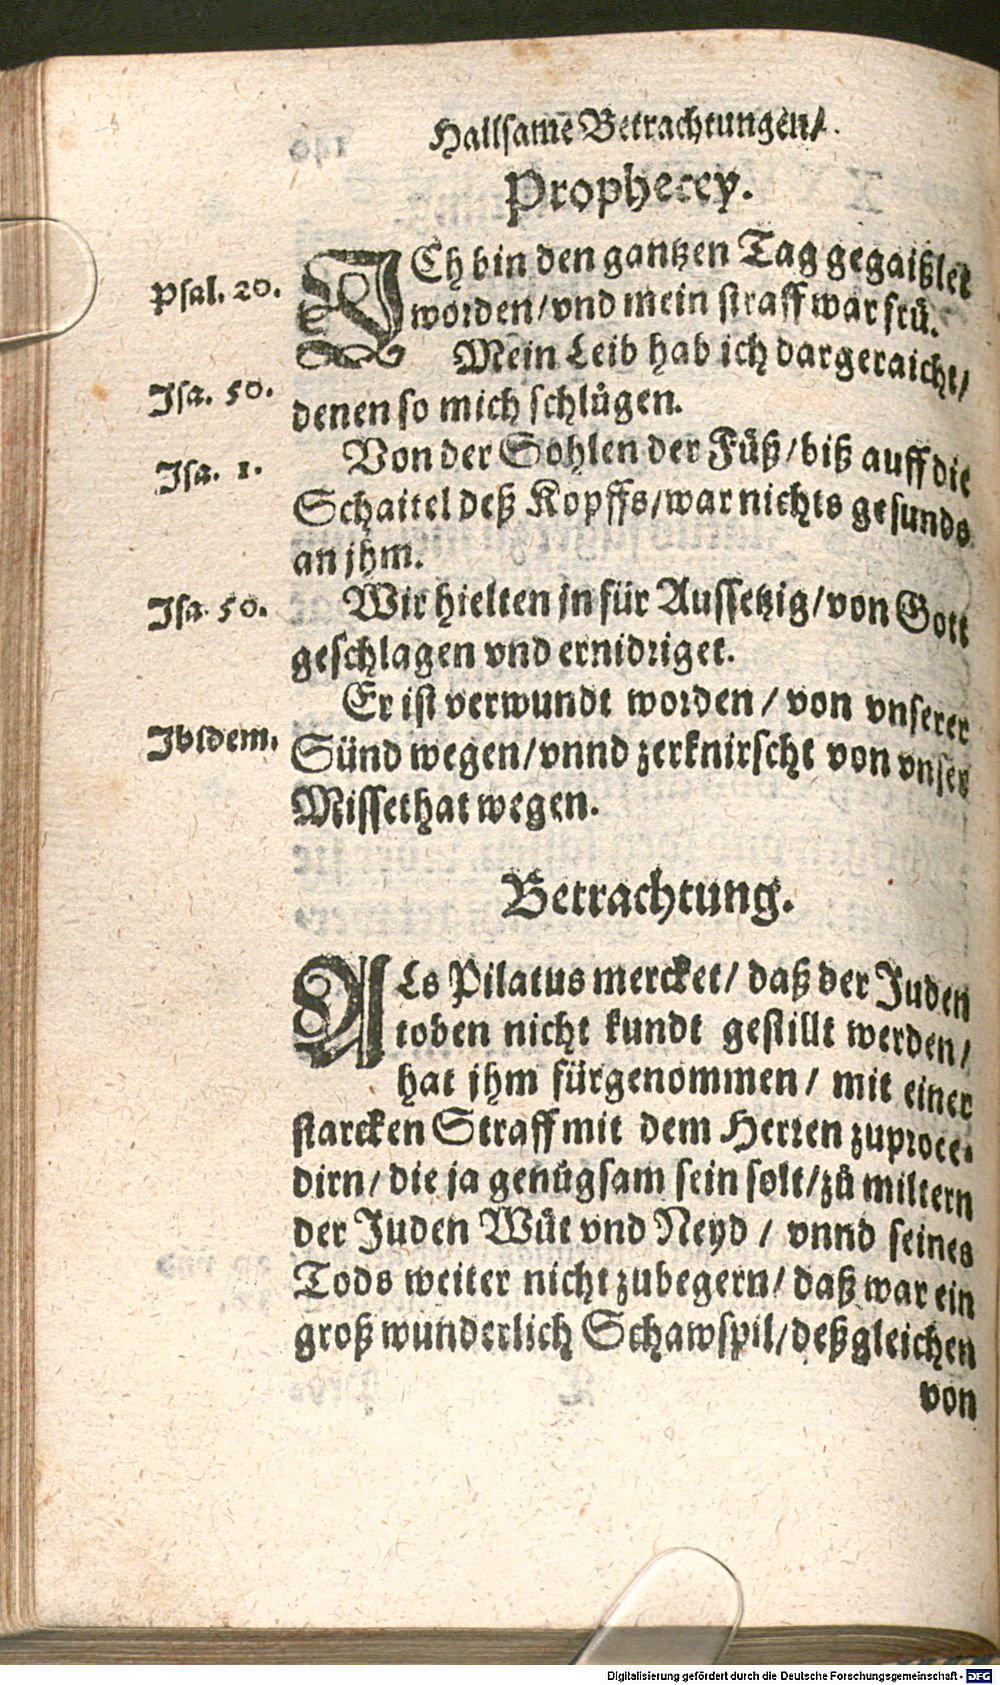 Hailsame Betrachtungen/
Prophecey.
Psal. 20.
ICh bin den gantzen Tag gegaißlet
worden/vnd mein straff war frů.
Mein Leib hab ich dargeraicht/
Isa. 50.
denen so mich schlůgen.
Von der Sohlen der Fůß/biß auff die
Isa. 1.
Schaitel deß Kopffs/war nichts gesunds
an jhm.
Wir hielten jn für Aussetzig/von Gott
Isa. 50.
geschlagen vnd ernidriget.
Er ist verwundt worden/von vnserer
Ibidem.
Sünd wegen/vnnd zerknirscht von vnser
Missethat wegen.
Betrachtung.
ALs Pilatus mercket/ daß der Juden
toben nicht kundt gestillt werden/
hat jhm fürgenommen/ mit einer
starcken Straff mit dem Herren zuproce-
dirn/die ja genůgsam sein solt/zů miltern
der Juden Wůt vnd Neyd / vnnd seines
Tods weiter nicht zubegern/ daß war ein
groß wunderlich Schawspil/deßgleichen
von
Digitalisierung gefördert durch die Deutsche Forschungsgemeinschaft - DFG